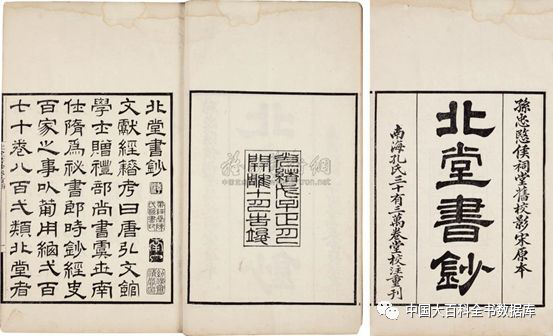 孫忠愍侯祠堂舊校影宋原本
北堂書鈔
南海孔氏三十有三萬卷堂校注重刊
光緒戊子正月
開雕十月告竣
北堂書鈔
文獻經籍考曰唐弘文館
學士贈禮部尚書虞世南
仕隋爲祕書郎時鈔經史
百家之事㕥葡用弌百
七十卷八百弌類北堂者
中国大百科全书数据库